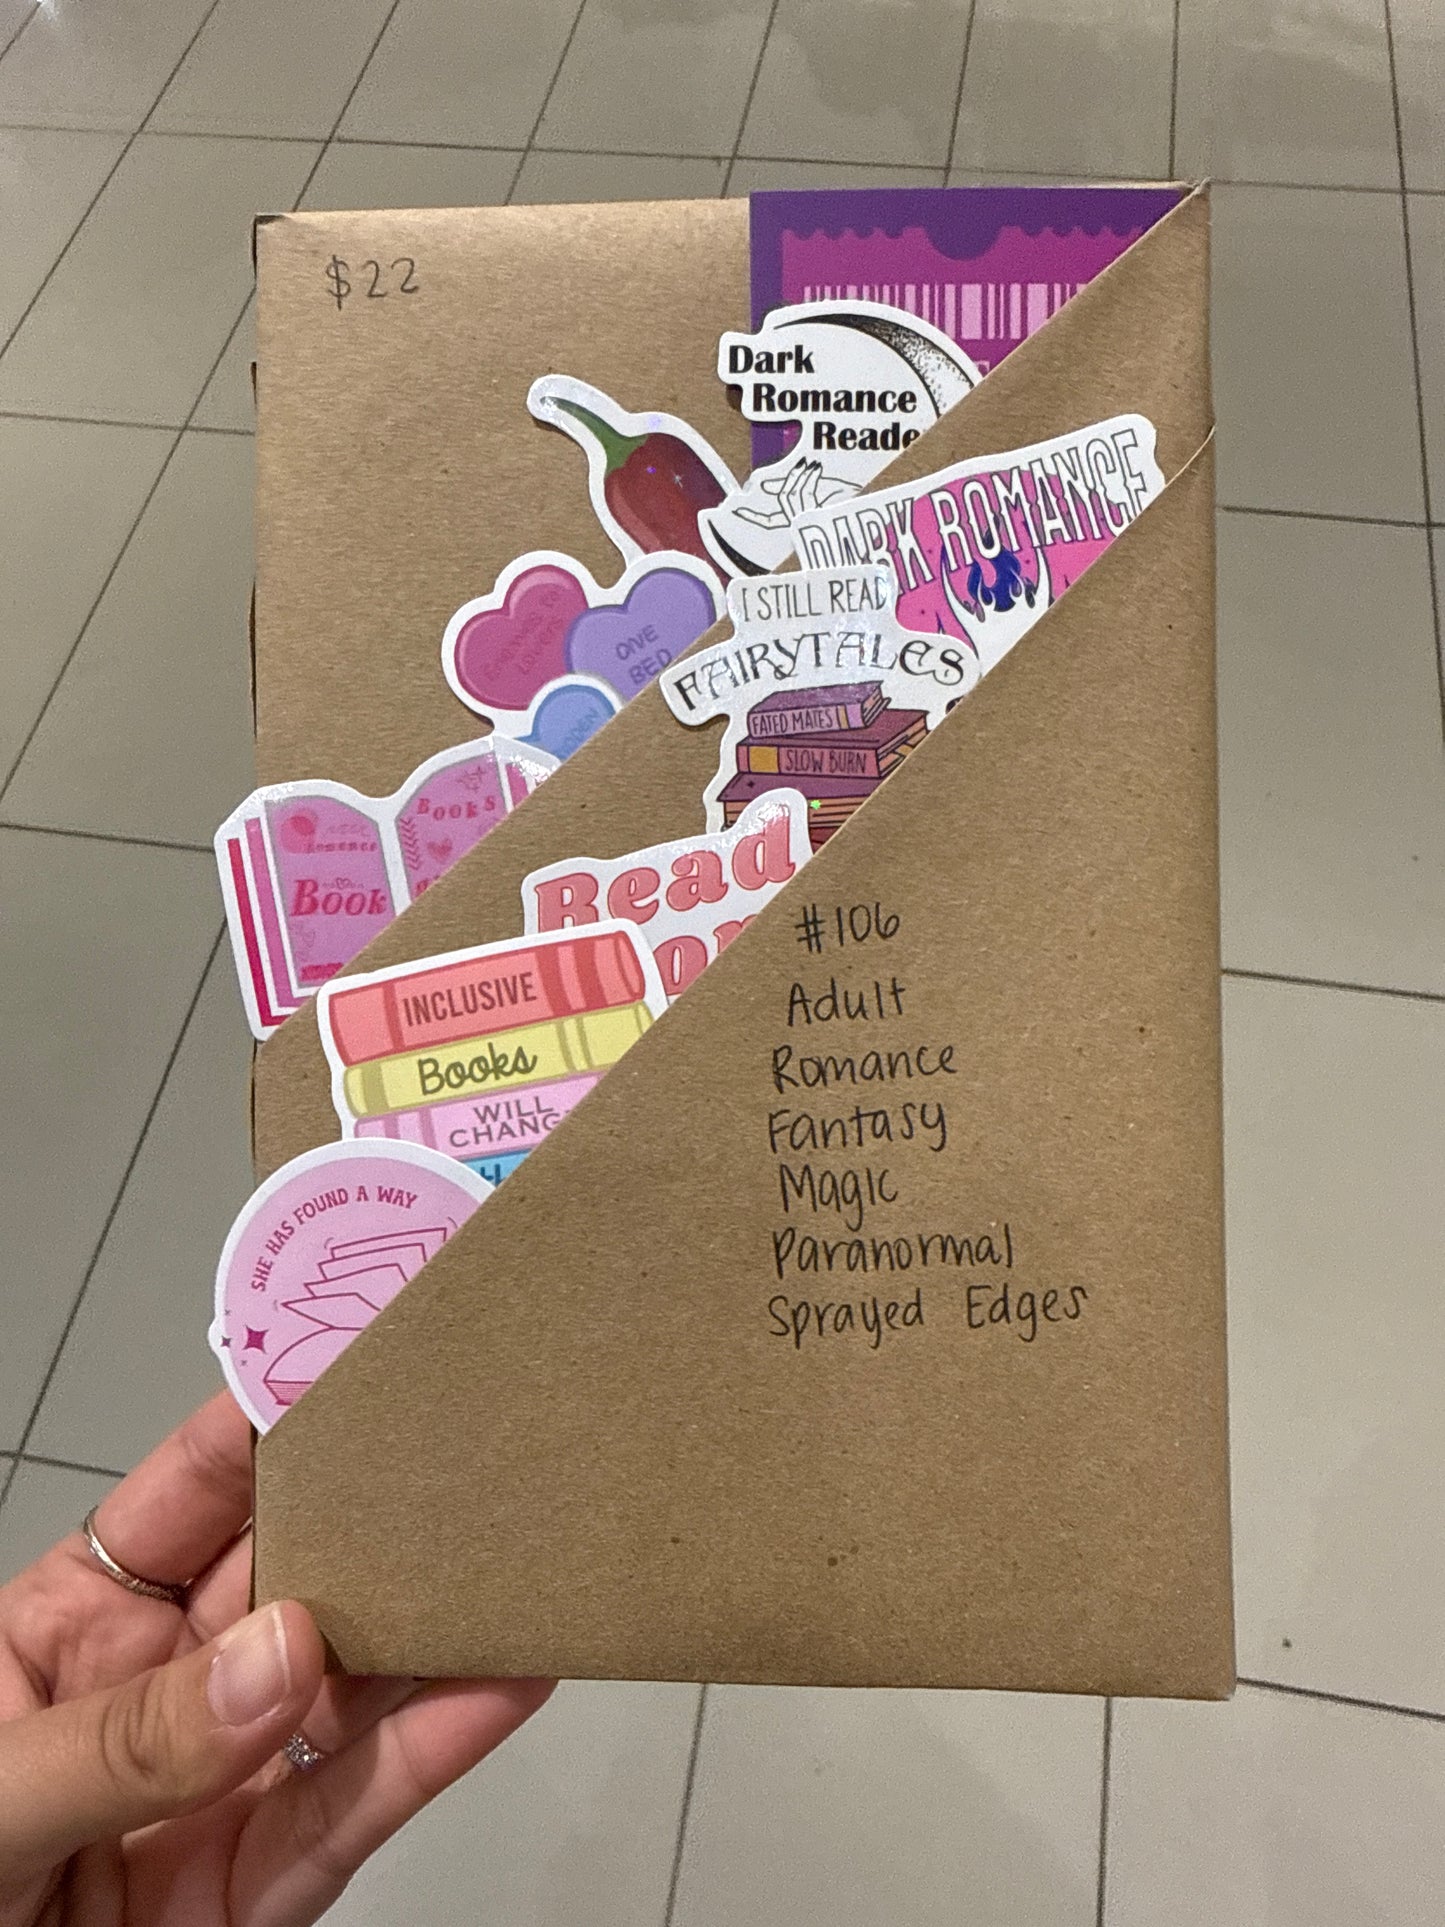 $22
Dark
Romance
Reade
DARK ROMANCE
I STILL READ
FAIRYTALES
FATED MATES
SLOW BURN
ONE
BED
Romance
Book
Books
Read
INCLUSIVE
Books
WILL
CHANG
SHE HAS FOUND A WAY
#106
Adult
Romance
Fantasy
Magic
Paranormal
Sprayed Edges